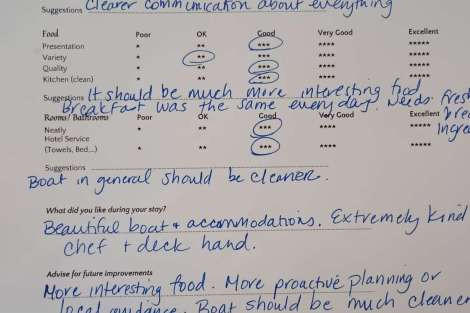 Suggestions Clearer communication about everything
Food Poor OK Good Very Good Excellent
Presentation * ** *** **** *****
Variety * ** *** **** *****
Quality * ** *** **** *****
Kitchen (clean) * ** *** **** *****
Suggestions It should be much more interesting food
Breakfast was the same everyday. Needs fresh
Rooms/Bathrooms Poor OK Good Very Good Excellent
Neatly * ** *** ****
Hotel Service
(Towels, Bed...) * ** *** **** *****
Suggestions
Boat in general should be cleaner.
What did you like during your stay?
Beautiful boat + accommodations. Extremely kind
chef + deck hand.
Advise for future improvements
More interesting food. More proactive planning or
local guidance. Boat should be much cleaner